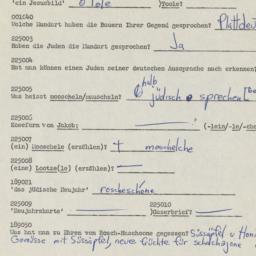 'ein Jesusbild' o Tole )Toole?
001040
Welche Mundart haben die Bauern Ihrer Gegend gesprochen? Plattdeu
225003
Haben die Juden die Mundart gesprochen? Ja
225004
Hat man können einen Juden seiner deutschen Aussprache nach erkennen?
225005 halb
Was heisst mooscheln/muuscheln? jüdisch sprechen
225006
Kneefurn von Jakob: (-lein/-le/-che
225007
(ein) Mooschele (erzählen)? + moschelche
225008
(eine) Lootze(le) (erzählen)?
189021
'das jüdische Neujahr' roscheschone
225009 225010
'Neujahrskarte' )Guserbrief?
189050
Was hat man zu Ihren vom Roosch-Haschoone gegessen? Süssäpfel u Hon
Gemüsse mit Süssäpfel, neues Früchte für schechejone